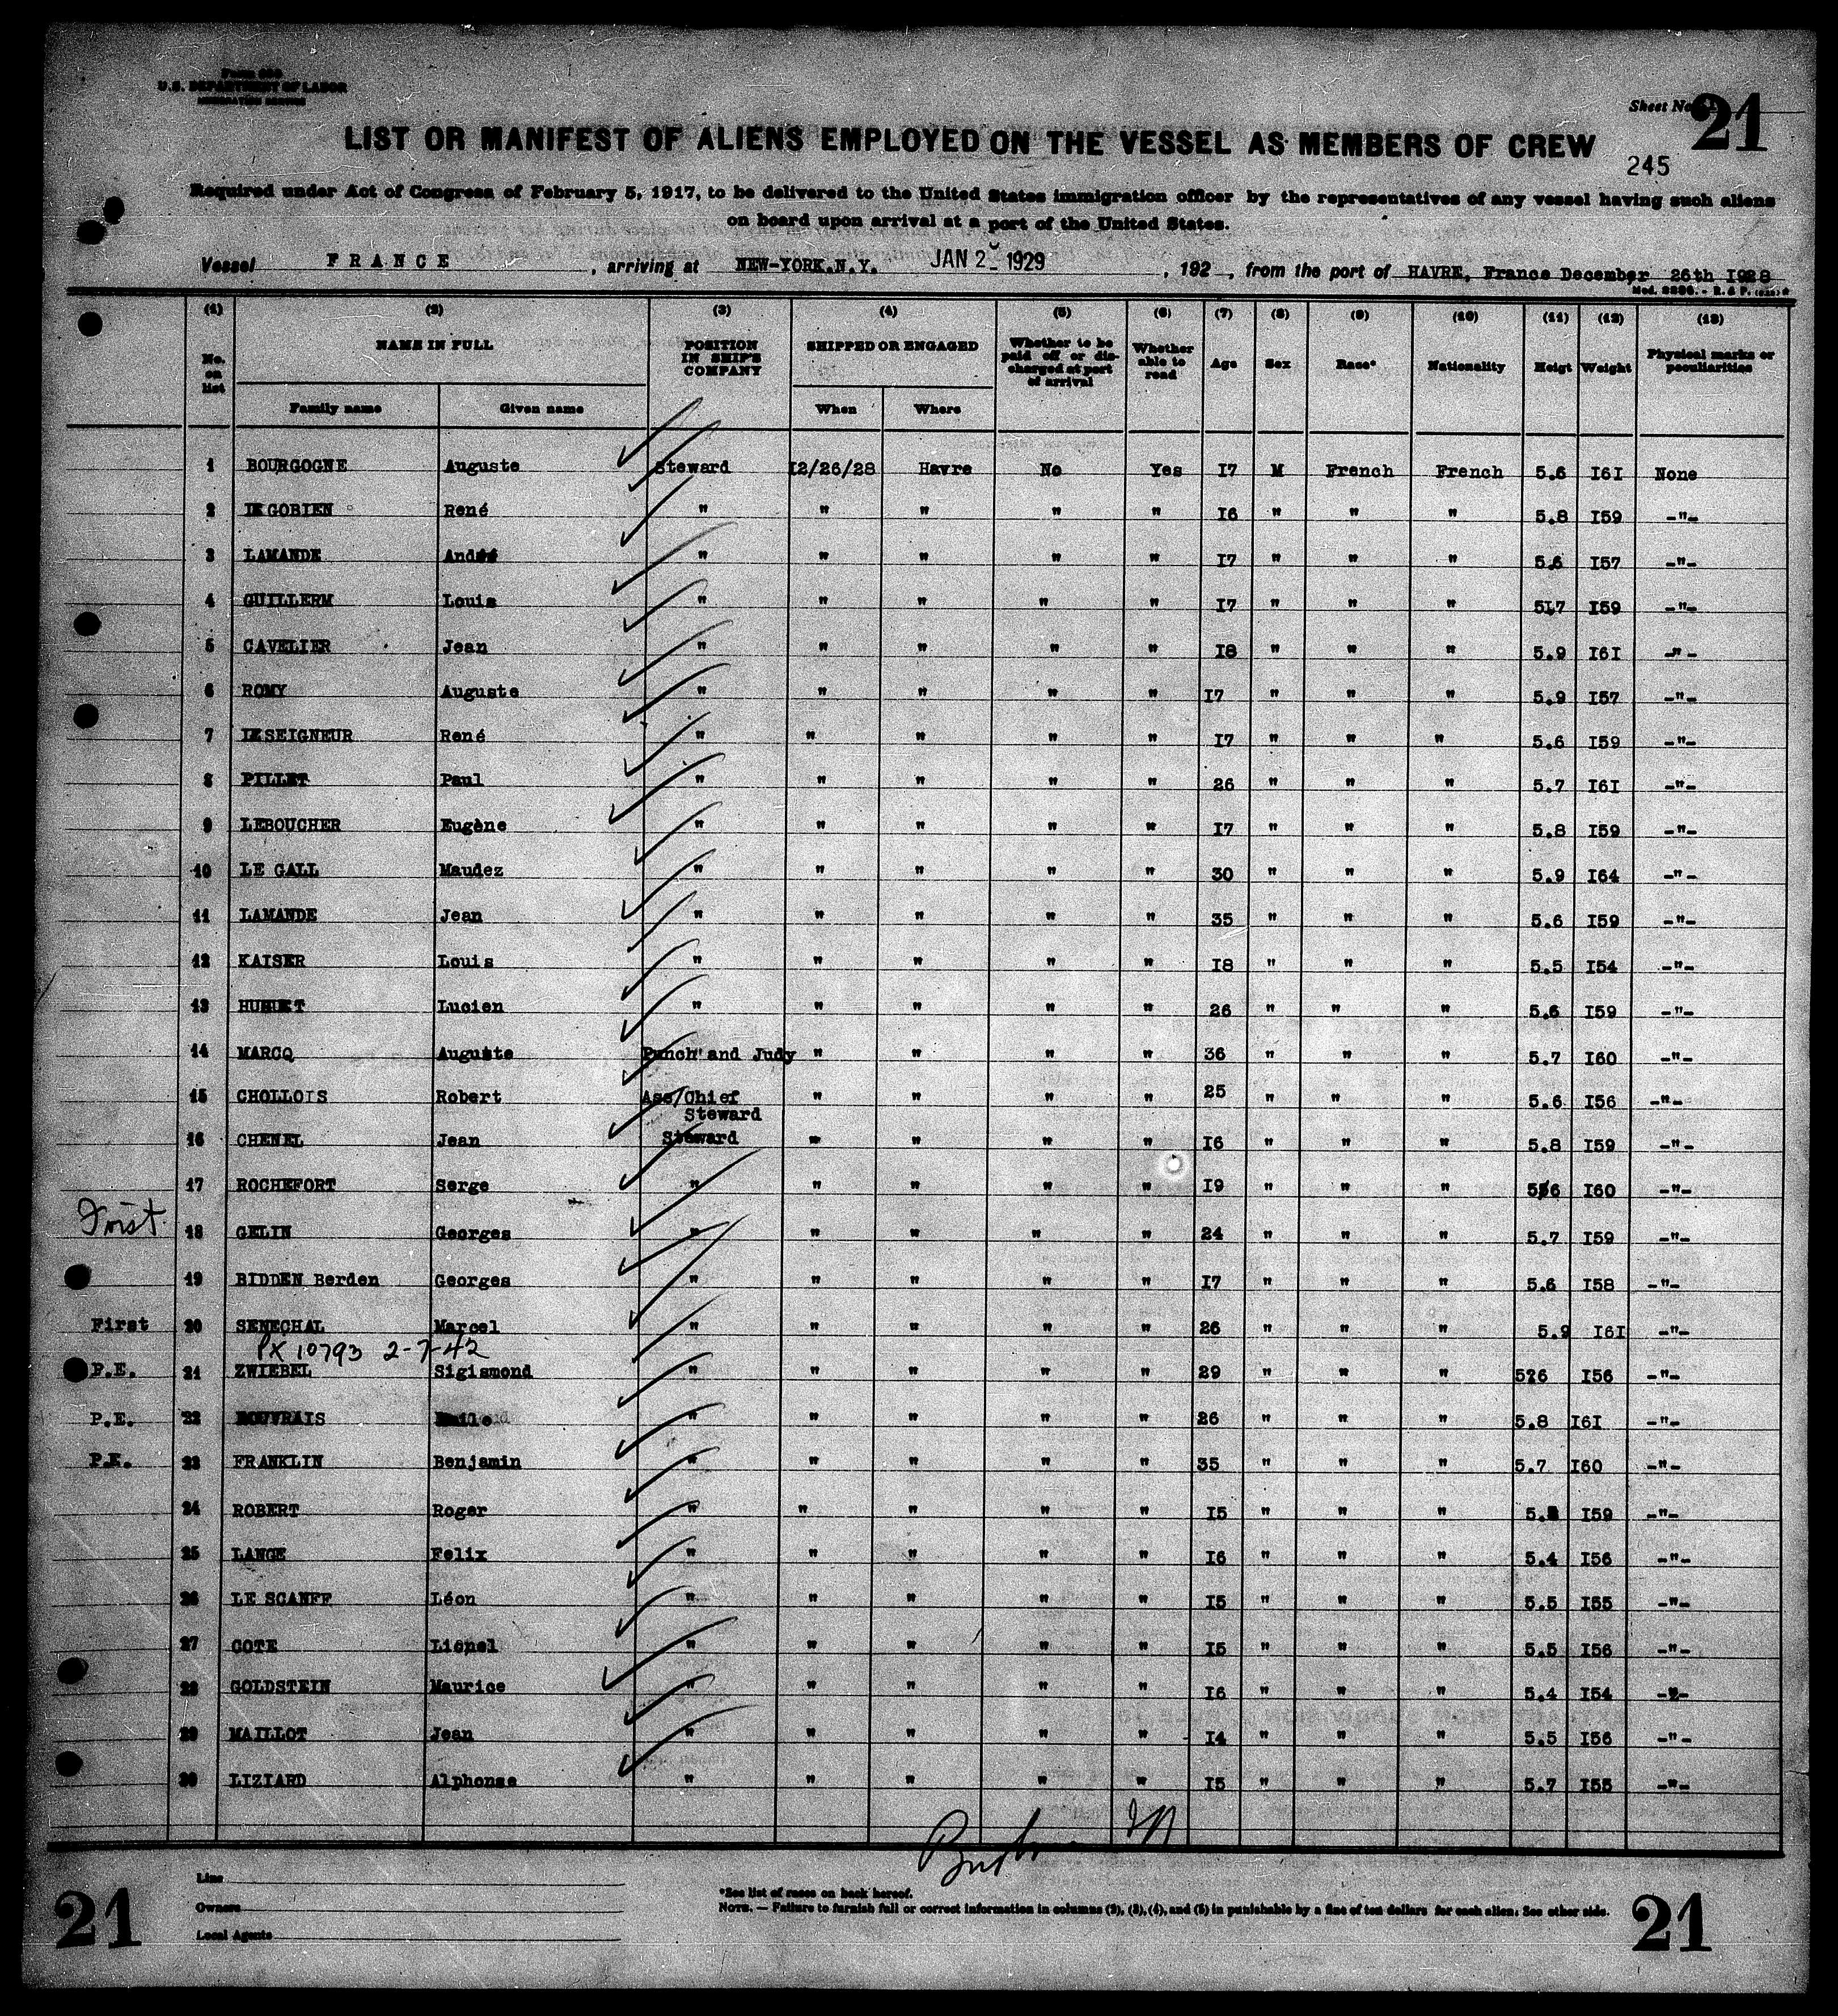 Form 689
U.S. DEPARTMENT OF LABOR
IMMIGRATION SERVICE
Sheet No. 21
LIST OR MANIFEST OF ALIENS EMPLOYED ON THE VESSEL AS MEMBERS OF CREW
245
Required under Act of Congress of February 5, 1917, to be delivered to the United States immigration officer by the representatives of any vessel having such aliens
on board upon arrival at a port of the United States.
Vessel FRANCE, arriving at NEW-YORK.N.Y. JAN 2 - 1929, 192 , from the port of HAVRE, France December 26th I928
(1) (2) (3) (4) (5) (6) (7) (8) (9) (10) (11) (12) (13)
No. on list NAME IN FULL Family name Given name POSITION IN SHIP'S COMPANY SHIPPED OR ENGAGED When Where Whether to be paid off or discharged at port of arrival Whether able to read Age Sex Race* Nationality Heigt Weight Physical marks or peculiarities
1 BOURGOGNE Auguste Steward I2/26/28 Havre No Yes I7 M French French 5.6 I6I None
2 LE GOBIEN René " " " " " I6 " " " 5.8 I59 -"-
3 LAMANDE André " " " " " I7 " " " 5.6 I57 -"-
4 GUILLERM Louis " " " " " I7 " " " 5.7 I59 -"-
5 CAVELIER Jean " " " " " I8 " " " 5.9 I6I -"-
6 ROMY Auguste " " " " " I7 " " " 5.9 I57 -"-
7 LE SEIGNEUR René " " " " " I7 " " " 5.6 I59 -"-
8 PILLET Paul " " " " " 26 " " " 5.7 I6I -"-
9 LEBOUCHER Eugène " " " " " I7 " " " 5.8 I59 -"-
10 LE GALL Maudez " " " " " 30 " " " 5.9 I64 -"-
11 LAMANDE Jean " " " " " 35 " " " 5.6 I59 -"-
12 KAISER Louis " " " " " I8 " " " 5.5 I54 -"-
13 Lucien " " " " " 26 " " " 5.6 I59 -"-
14 MARCQ Auguste Punch and Judy " " " " 36 " " " 5.7 I60 -"-
15 CHOLLOIS Robert Ass/Chief Steward " " " " 25 " " " 5.6 I56 -"-
16 CHENEL Jean Steward " " " " I6 " " " 5.8 I59 -"-
17 ROCHEFORT Serge " " " " " I9 " " " 5.6 I60 -"-
First 18 GELIN Georges " " " " " 24 " " " 5.7 I59 -"-
19 BIDDEN Berden Georges " " " " " I7 " " " 5.6 I58 -"-
First 20 SENECHAL Marcel " " " " " 26 " " " 5.9 I6I -"-
PX 10793 2-7-42
P.E. 21 ZWIEBEL Sigismond " " " " " 29 " " " 5.6 I56 -"-
P.E. 22 " " " " " 26 " " " 5.8 I6I -"-
P.E. 23 FRANKLIN Benjamin " " " " " 35 " " " 5.7 I60 -"-
24 ROBERT Roger " " " " " I5 " " " I59 -"-
25 LANGE Felix " " " " " I6 " " " 5.4 I56 -"-
26 LE SCANFF Léon " " " " " I5 " " " 5.5 I55 -"-
27 COTE Lionel " " " " " I5 " " " 5.5 I56 -"-
28 GOLDSTEIN Maurice " " " " " I6 " " " 5.4 I54 -"-
29 MAILLOT Jean " " " " " I4 " " " 5.5 I56 -"-
30 LIZIARD Alphonse " " " " " I5 " " " 5.7 I55 -"-
Line
Owners
Local Agents
*See list of races on back hereof.
NOTE. — Failure to furnish full or correct information in columns (2), (3), (4), and (5) in punishable by a fine of ten dollars for each alien. See other side.
21
21